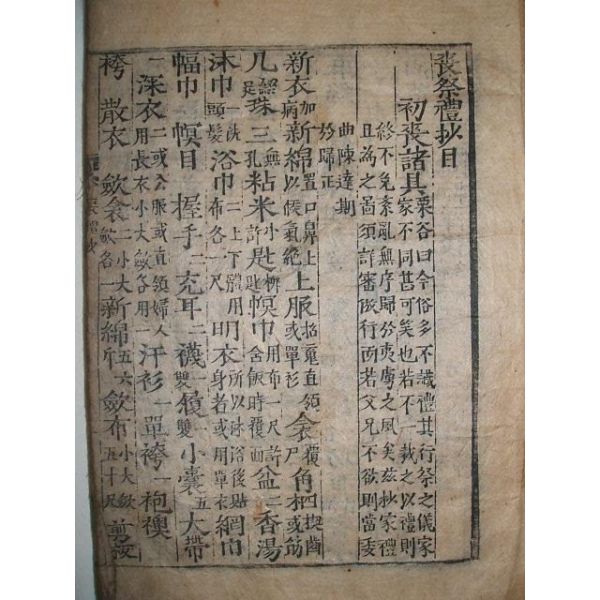 喪祭禮抄目
初喪諸具 栗谷曰今俗多不識禮其行祭之儀家
家不同甚可笑也若不一裁之以禮則
終不免紊亂無序歸於夷虜之風矣玆抄家禮
且為之圖須詳審倣行而若父兄不欲則當委
曲陳達期
於歸正
新衣 加病 新綿 以候氣絶置口鼻上 上服 或單衫招魂直領 衾 覆尸 角柶 楔齒四或筯
几 綴足 珠三 無孔 粘米 小許 匙 幎巾 用布一尺許舍飯時覆面 盆二 香湯
沐巾一 洗頭髮 浴巾二 上下體用布各一尺 明衣 所以沐浴後貼身者或用單衣 網巾
幅巾 幎目 握手二 充耳二 襪 一雙 履 一雙 小囊五 大帶
一 深衣 二或公服或直領婦人用長衣小大斂各用一 汗衫一 單袴一 袍襖
袴 散衣 斂衾二 小大斂各一 新綿 五六斤 斂布 小大斂五十尺